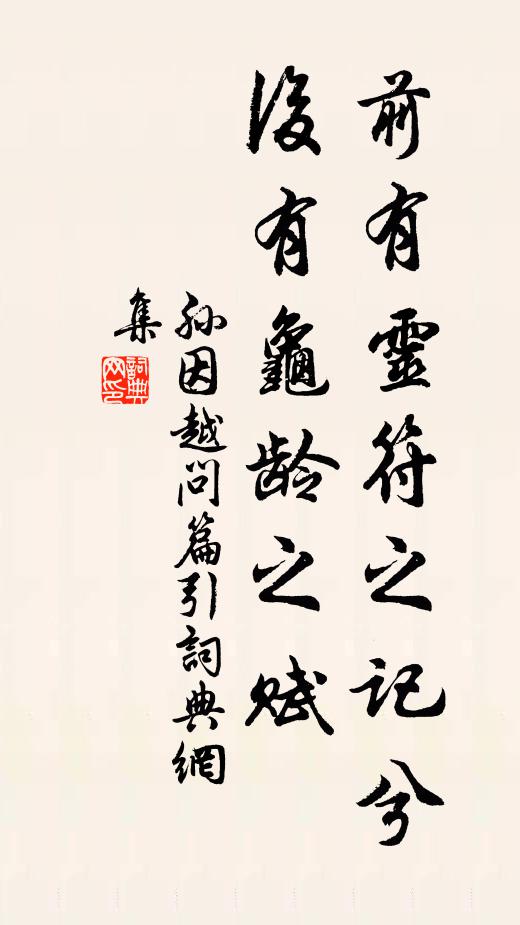 前有靈符之记兮
後有龜龄之赋
孙因越问篇引詞典網
集
詞典網印